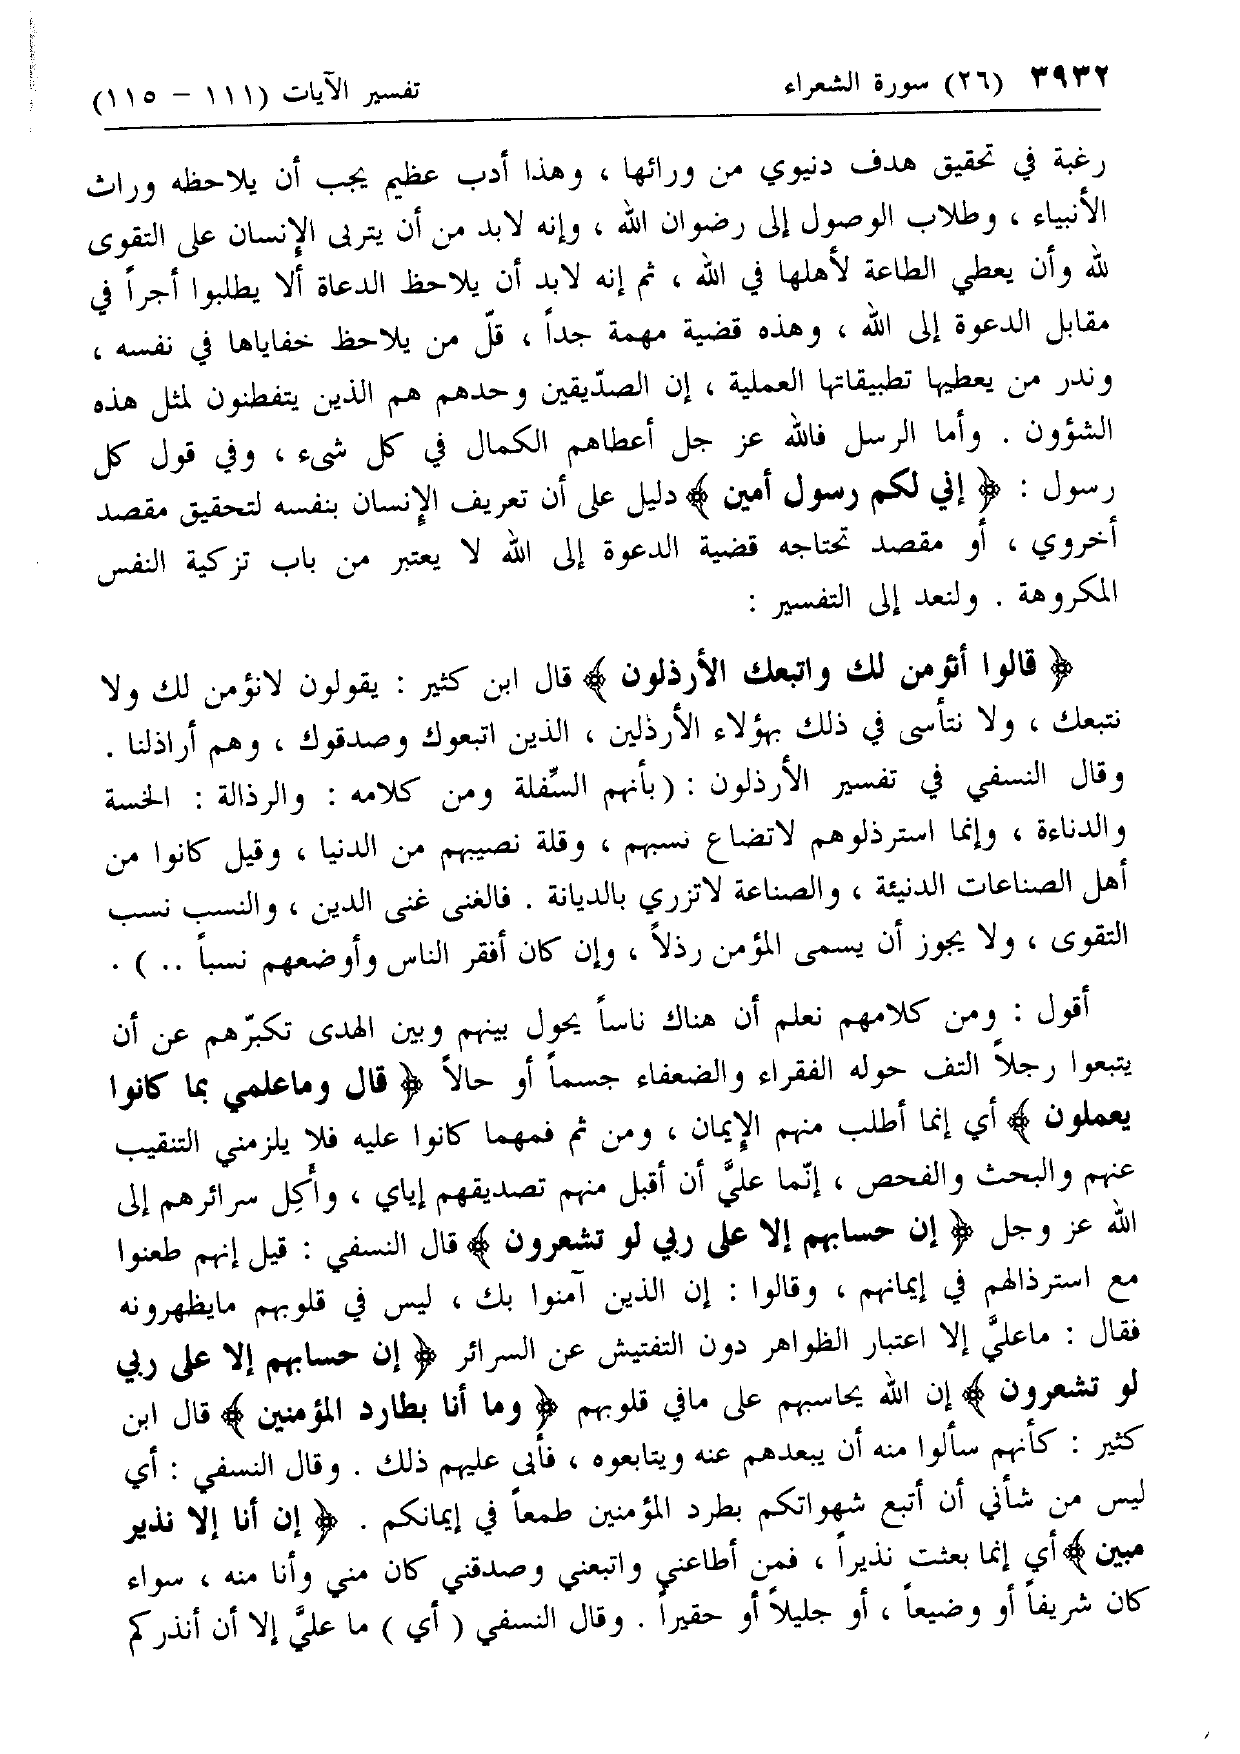 ٣٩٣٢ (٢٦) سورة الشعراء تفسير الآيات (١١١ – ١١٥)
رغبة في تحقيق هدف دنيوي من ورائها ، وهذا أدب عظيم يجب أن يلاحظه وراث
الأنبياء ، وطلاب الوصول إلى رضوان الله ، وإنه لابد من أن يتربى الإنسان على التقوى
لله وأن يعطي الطاعة لأهلها في الله ، ثم إنه لابد أن يلاحظ الدعاة ألا يطلبوا أجراً في
مقابل الدعوة إلى الله ، وهذه قضية مهمة جداً ، قلّ من يلاحظ خفاياها في نفسه ،
وندر من يعطيها تطبيقاتها العملية ، إن الصدّيقين وحدهم هم الذين يتفطنون لمثل هذه
الشؤون . وأما الرسل فالله عز جل أعطاهم الكمال في كل شىء ، وفي قول كل
رسول : ﴿ إني لكم رسول أمين ﴾ دليل على أن تعريف الإنسان بنفسه لتحقيق مقصد
أخروي ، أو مقصد تحتاجه قضية الدعوة إلى الله لا يعتبر من باب تزكية النفس
المكروهة . ولنعد إلى التفسير :
﴿ قالوا أنؤمن لك واتبعك الأرذلون ﴾ قال ابن كثير : يقولون لانؤمن لك ولا
نتبعك ، ولا نتأسى في ذلك بهؤلاء الأرذلين ، الذين اتبعوك وصدقوك ، وهم أراذلنا .
وقال النسفي في تفسير الأرذلون : ( بأنهم السِّفلة ومن كلامه : والرذالة : الخسة
والدناءة ، وإنما استرذلوهم لاتضاع نسبهم ، وقلة نصيبهم من الدنيا ، وقيل كانوا من
أهل الصناعات الدنيئة ، والصناعة لاتزري بالديانة . فالغنى غنى الدين ، والنسب نسب
التقوى ، ولا يجوز أن يسمى المؤمن رذلاً ، وإن كان أفقر الناس وأوضعهم نسباً .. ) .
أقول : ومن كلامهم نعلم أن هناك ناساً يحول بينهم وبين الهدى تكبرّهم عن أن
يتبعوا رجلاً التف حوله الفقراء والضعفاء جسماً أو حالاً ﴿ قال وماعلمي بما كانوا
يعملون ﴾ أي إنما أطلب منهم الإيمان ، ومن ثم فمهما كانوا عليه فلا يلزمني التنقيب
عنهم والبحث والفحص ، إنّما عليَّ أن أقبل منهم تصديقهم إياي ، وأكِل سرائرهم إلى
الله عز وجل ﴿ إن حسابهم إلا على ربي لو تشعرون ﴾ قال النسفي : قيل إنهم طعنوا
مع استرذالهم في إيمانهم ، وقالوا : إن الذين آمنوا بك ، ليس في قلوبهم مايظهرونه
فقال : ماعليَّ إلا اعتبار الظواهر دون التفتيش عن السرائر ﴿ إن حسابهم إلا على ربي
لو تشعرون ﴾ إن الله يحاسبهم على مافي قلوبهم ﴿ وما أنا بطارد المؤمنين ﴾ قال ابن
كثير : كأنهم سألوا منه أن يبعدهم عنه ويتابعوه ، فأبى عليهم ذلك . وقال النسفي : أي
ليس من شأني أن أتبع شهواتكم بطرد المؤمنين طمعاً في إيمانكم . ﴿ إن أنا إلا نذير
مبين ﴾ أي إنما بعثت نذيراً ، فمن أطاعني واتبعني وصدقني كان مني وأنا منه ، سواء
كان شريفاً أو وضيعاً ، أو جليلاً أو حقيراً . وقال النسفي ( أي ) ما عليَّ إلا أن أنذركم